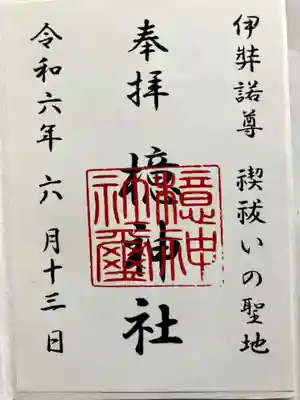 伊弉諾尊 禊祓いの聖地
奉拝 檍神社
檍神社璽
令和六年 六月十三日